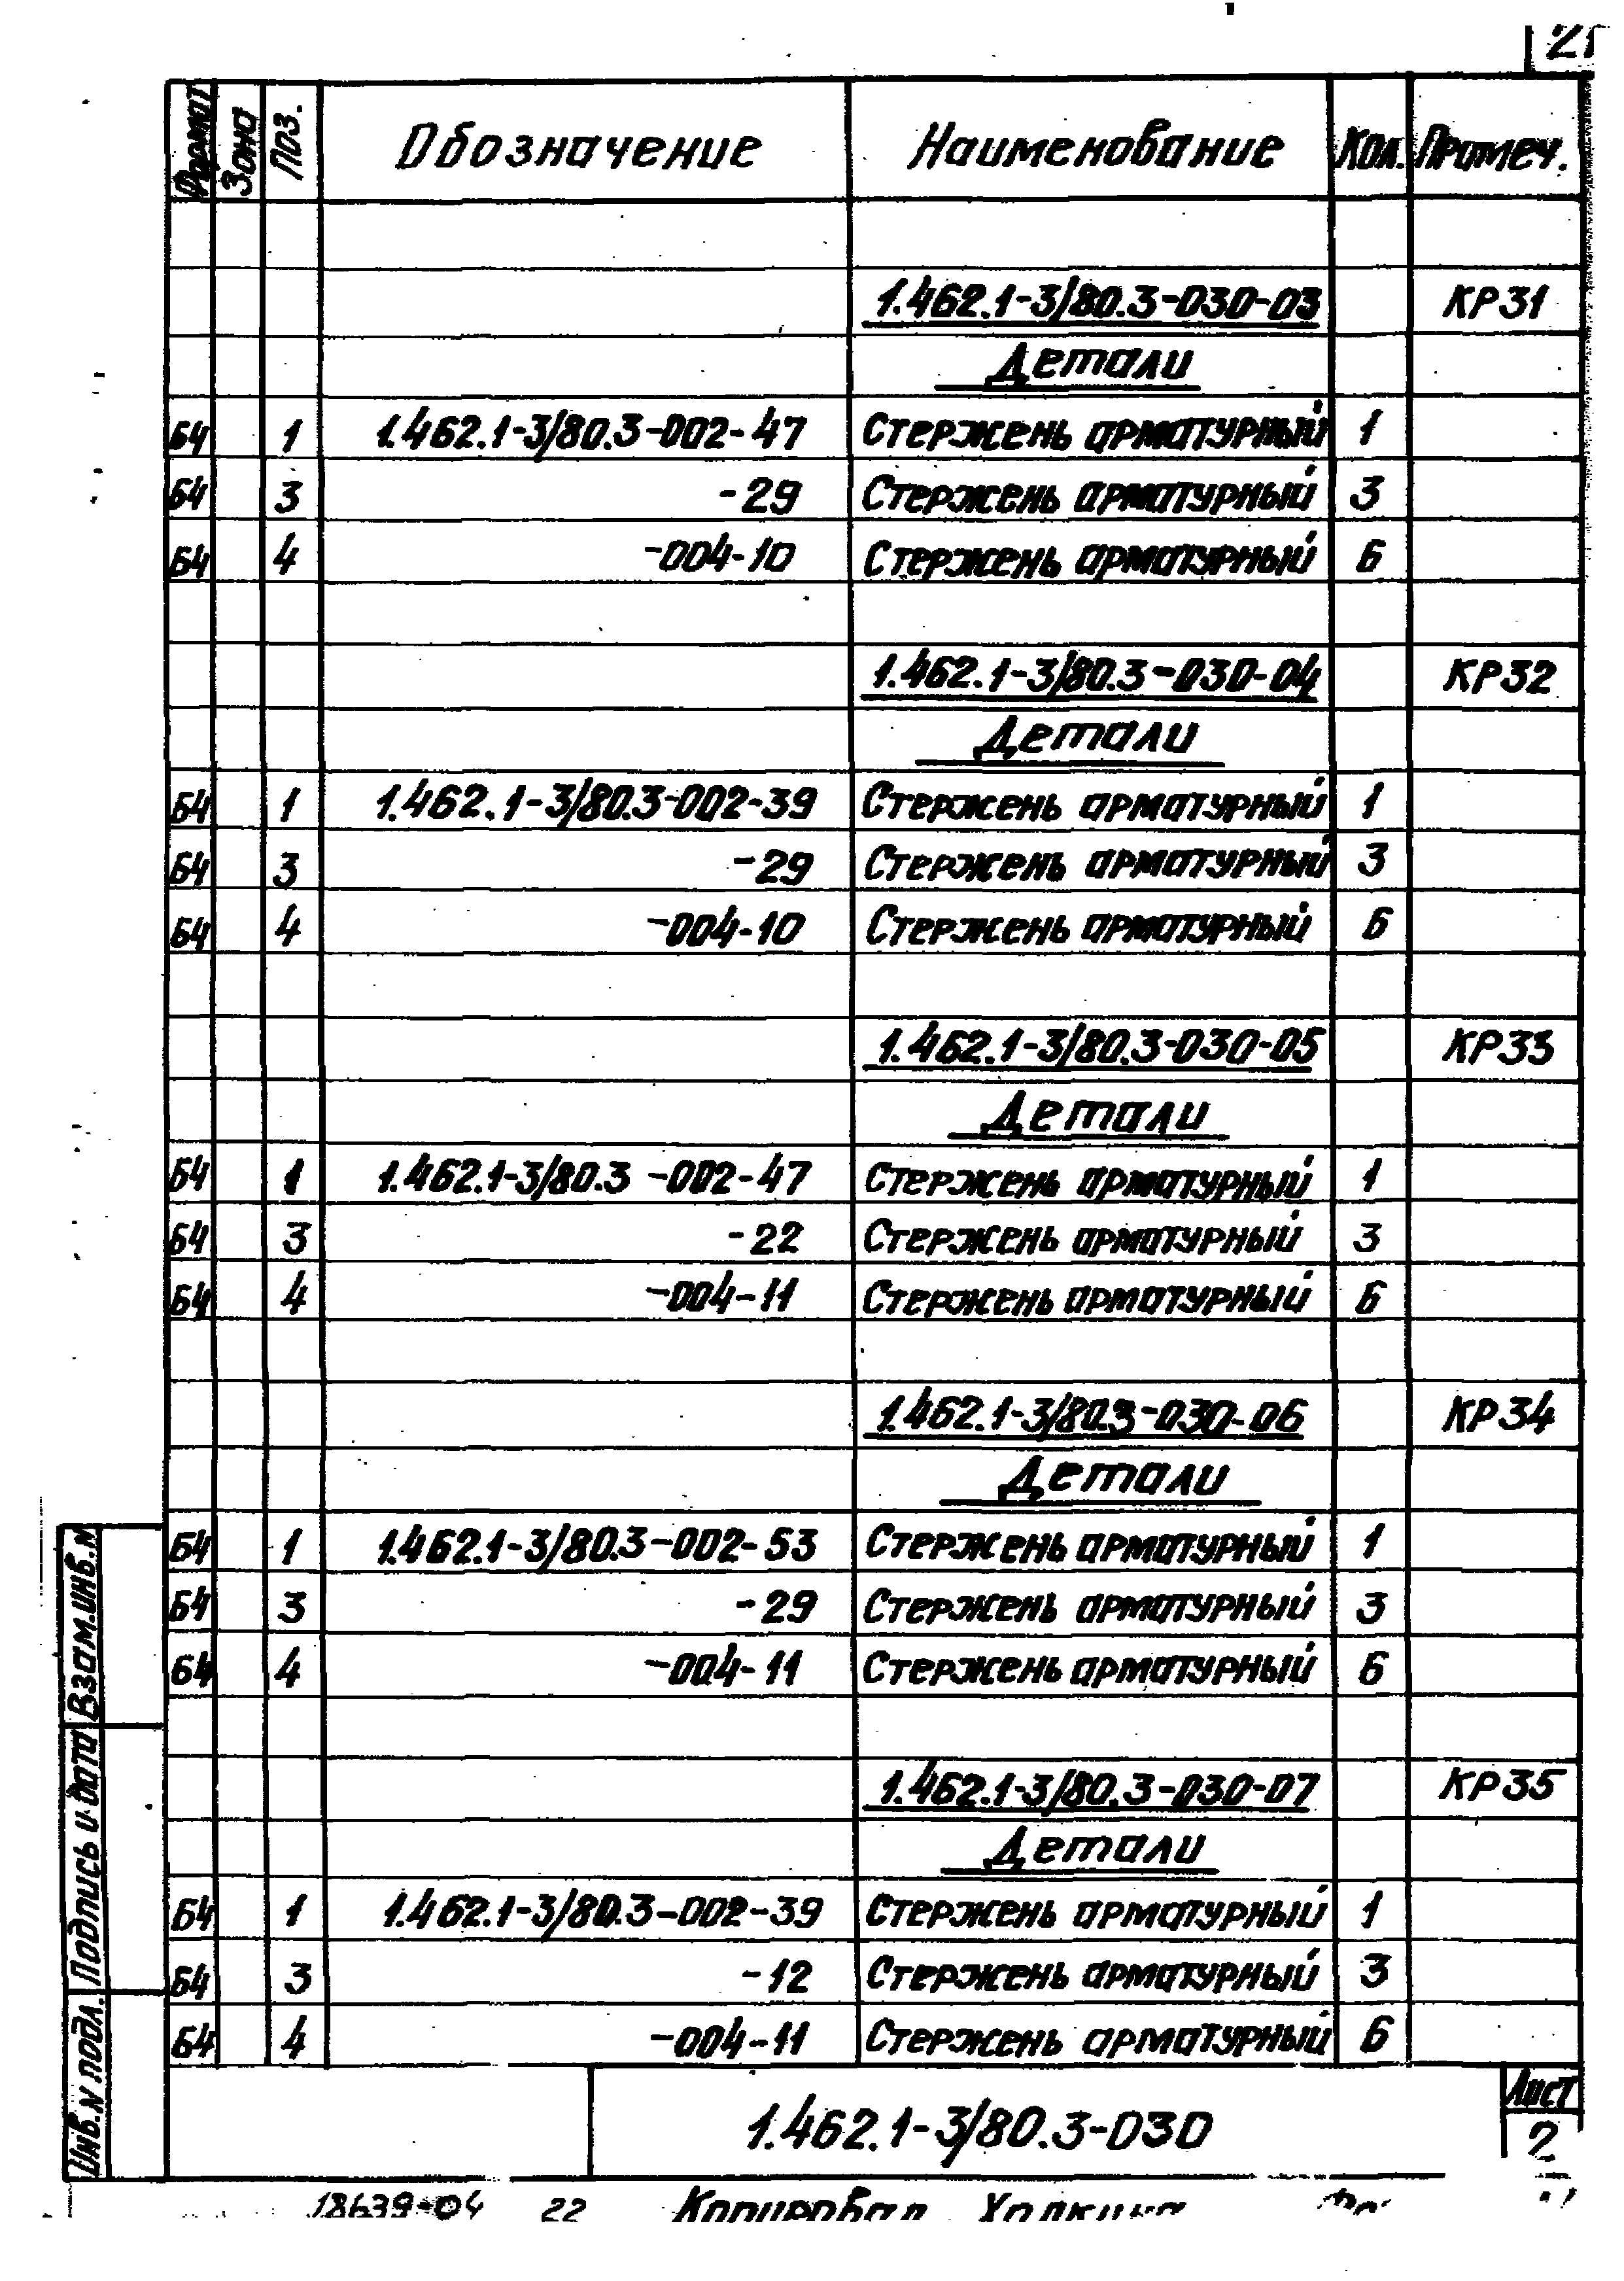 21
Формат Зона Поз. Обозначение Наименование Кол. Примеч.
1.462.1-3/80.3-030-03 КР31
Детали
Б4 1 1.462.1-3/80.3-002-47 Стержень арматурный 1
Б4 3 -29 Стержень арматурный 3
Б4 4 -004-10 Стержень арматурный 6
1.462.1-3/80.3-030-04 КР32
Детали
Б4 1 1.462.1-3/80.3-002-39 Стержень арматурный 1
Б4 3 -29 Стержень арматурный 3
Б4 4 -004-10 Стержень арматурный 6
1.462.1-3/80.3-030-05 КР33
Детали
Б4 1 1.462.1-3/80.3-002-47 Стержень арматурный 1
Б4 3 -22 Стержень арматурный 3
Б4 4 -004-11 Стержень арматурный 6
1.462.1-3/80.3-030-06 КР34
Детали
Б4 1 1.462.1-3/80.3-002-53 Стержень арматурный 1
Б4 3 -29 Стержень арматурный 3
Б4 4 -004-11 Стержень арматурный 6
1.462.1-3/80.3-030-07 КР35
Детали
Б4 1 1.462.1-3/80.3-002-39 Стержень арматурный 1
Б4 3 -12 Стержень арматурный 3
Б4 4 -004-11 Стержень арматурный 6
Взам.инв.N
Подпись и дата
Инв.N подл.
1.462.1-3/80.3-030
Лист
2
18639-04 22 Копировал